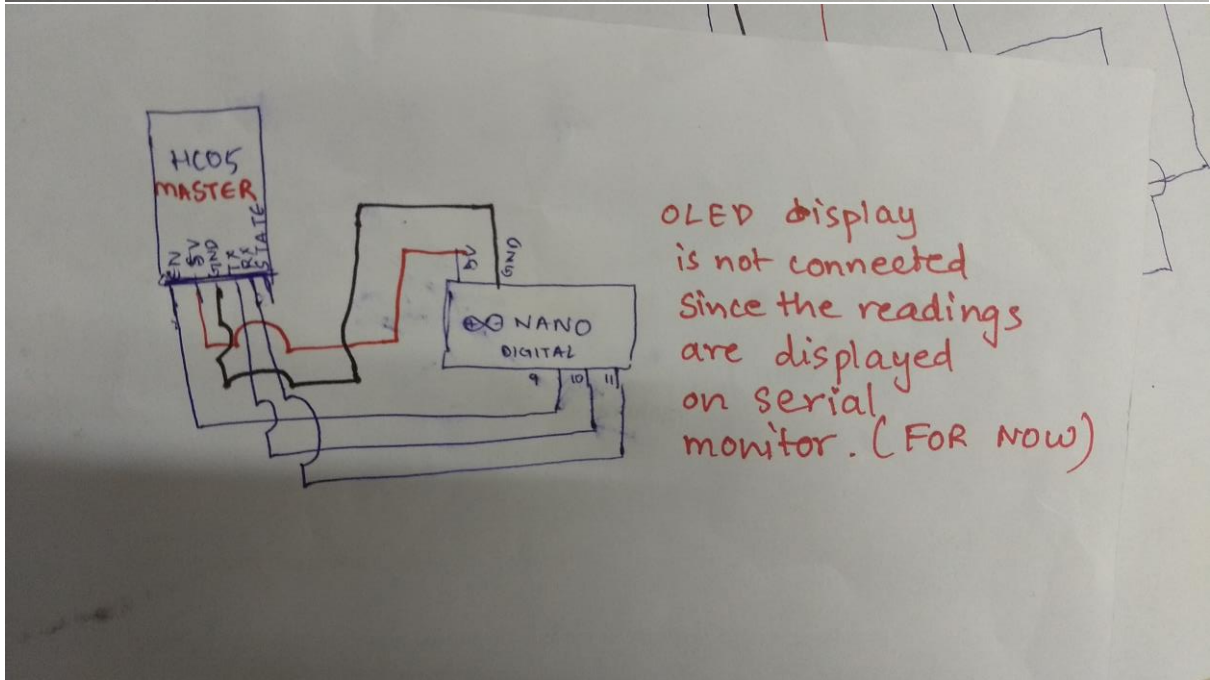 HC05
MASTER
EN
5V
GND
TX
RX
STATE
5V
GND
NANO
DIGITAL
9 10 11
OLED display
is not connected
Since the readings
are displayed
on serial
monitor. (FOR NOW)